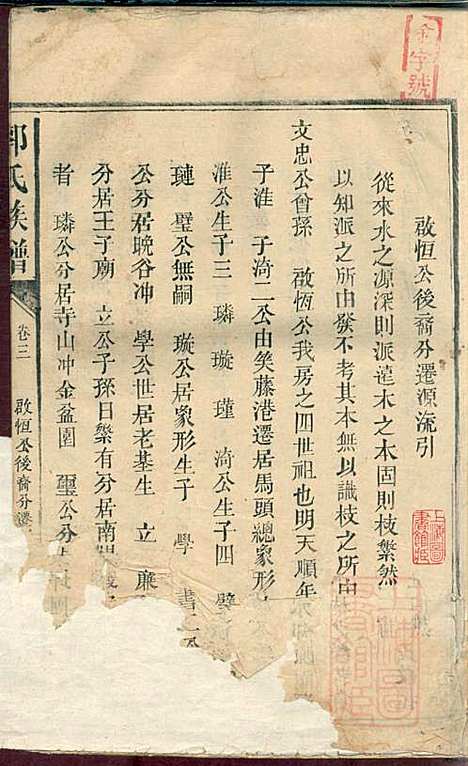 金字號
啟恒公後裔分遷源流引
從來水之源深則派遠木之本固則枝繁然
以知派之所由發不考其本無以識枝之所由
文忠公曾孫 啟恆公我房之四世祖也明天順年
子淮 子漪二公由笑藤港遷居馬頭總象形
淮公生子三 璘 璇 瑾 漪公生子四
璉 璧公無嗣 璇公居象形生子 學 書
公分居晚谷冲 學公世居老基生 立 廉
分居王了廟 立公子孫日繁有分居南
者 璘公分居寺山冲金盆園 璽公分
氏族譜
卷三
啟恆公後裔分遷